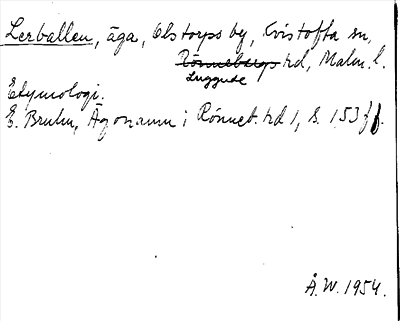 Lerballen, äga, Olstorps by, Kvistofta sn,
Rönnebergs hd, Malm. l.
Luggude
Etymologi.
E. Bruhn, Ägonamn i Rönneb. hd 1, s. 153 ff.
Å.W. 1954.